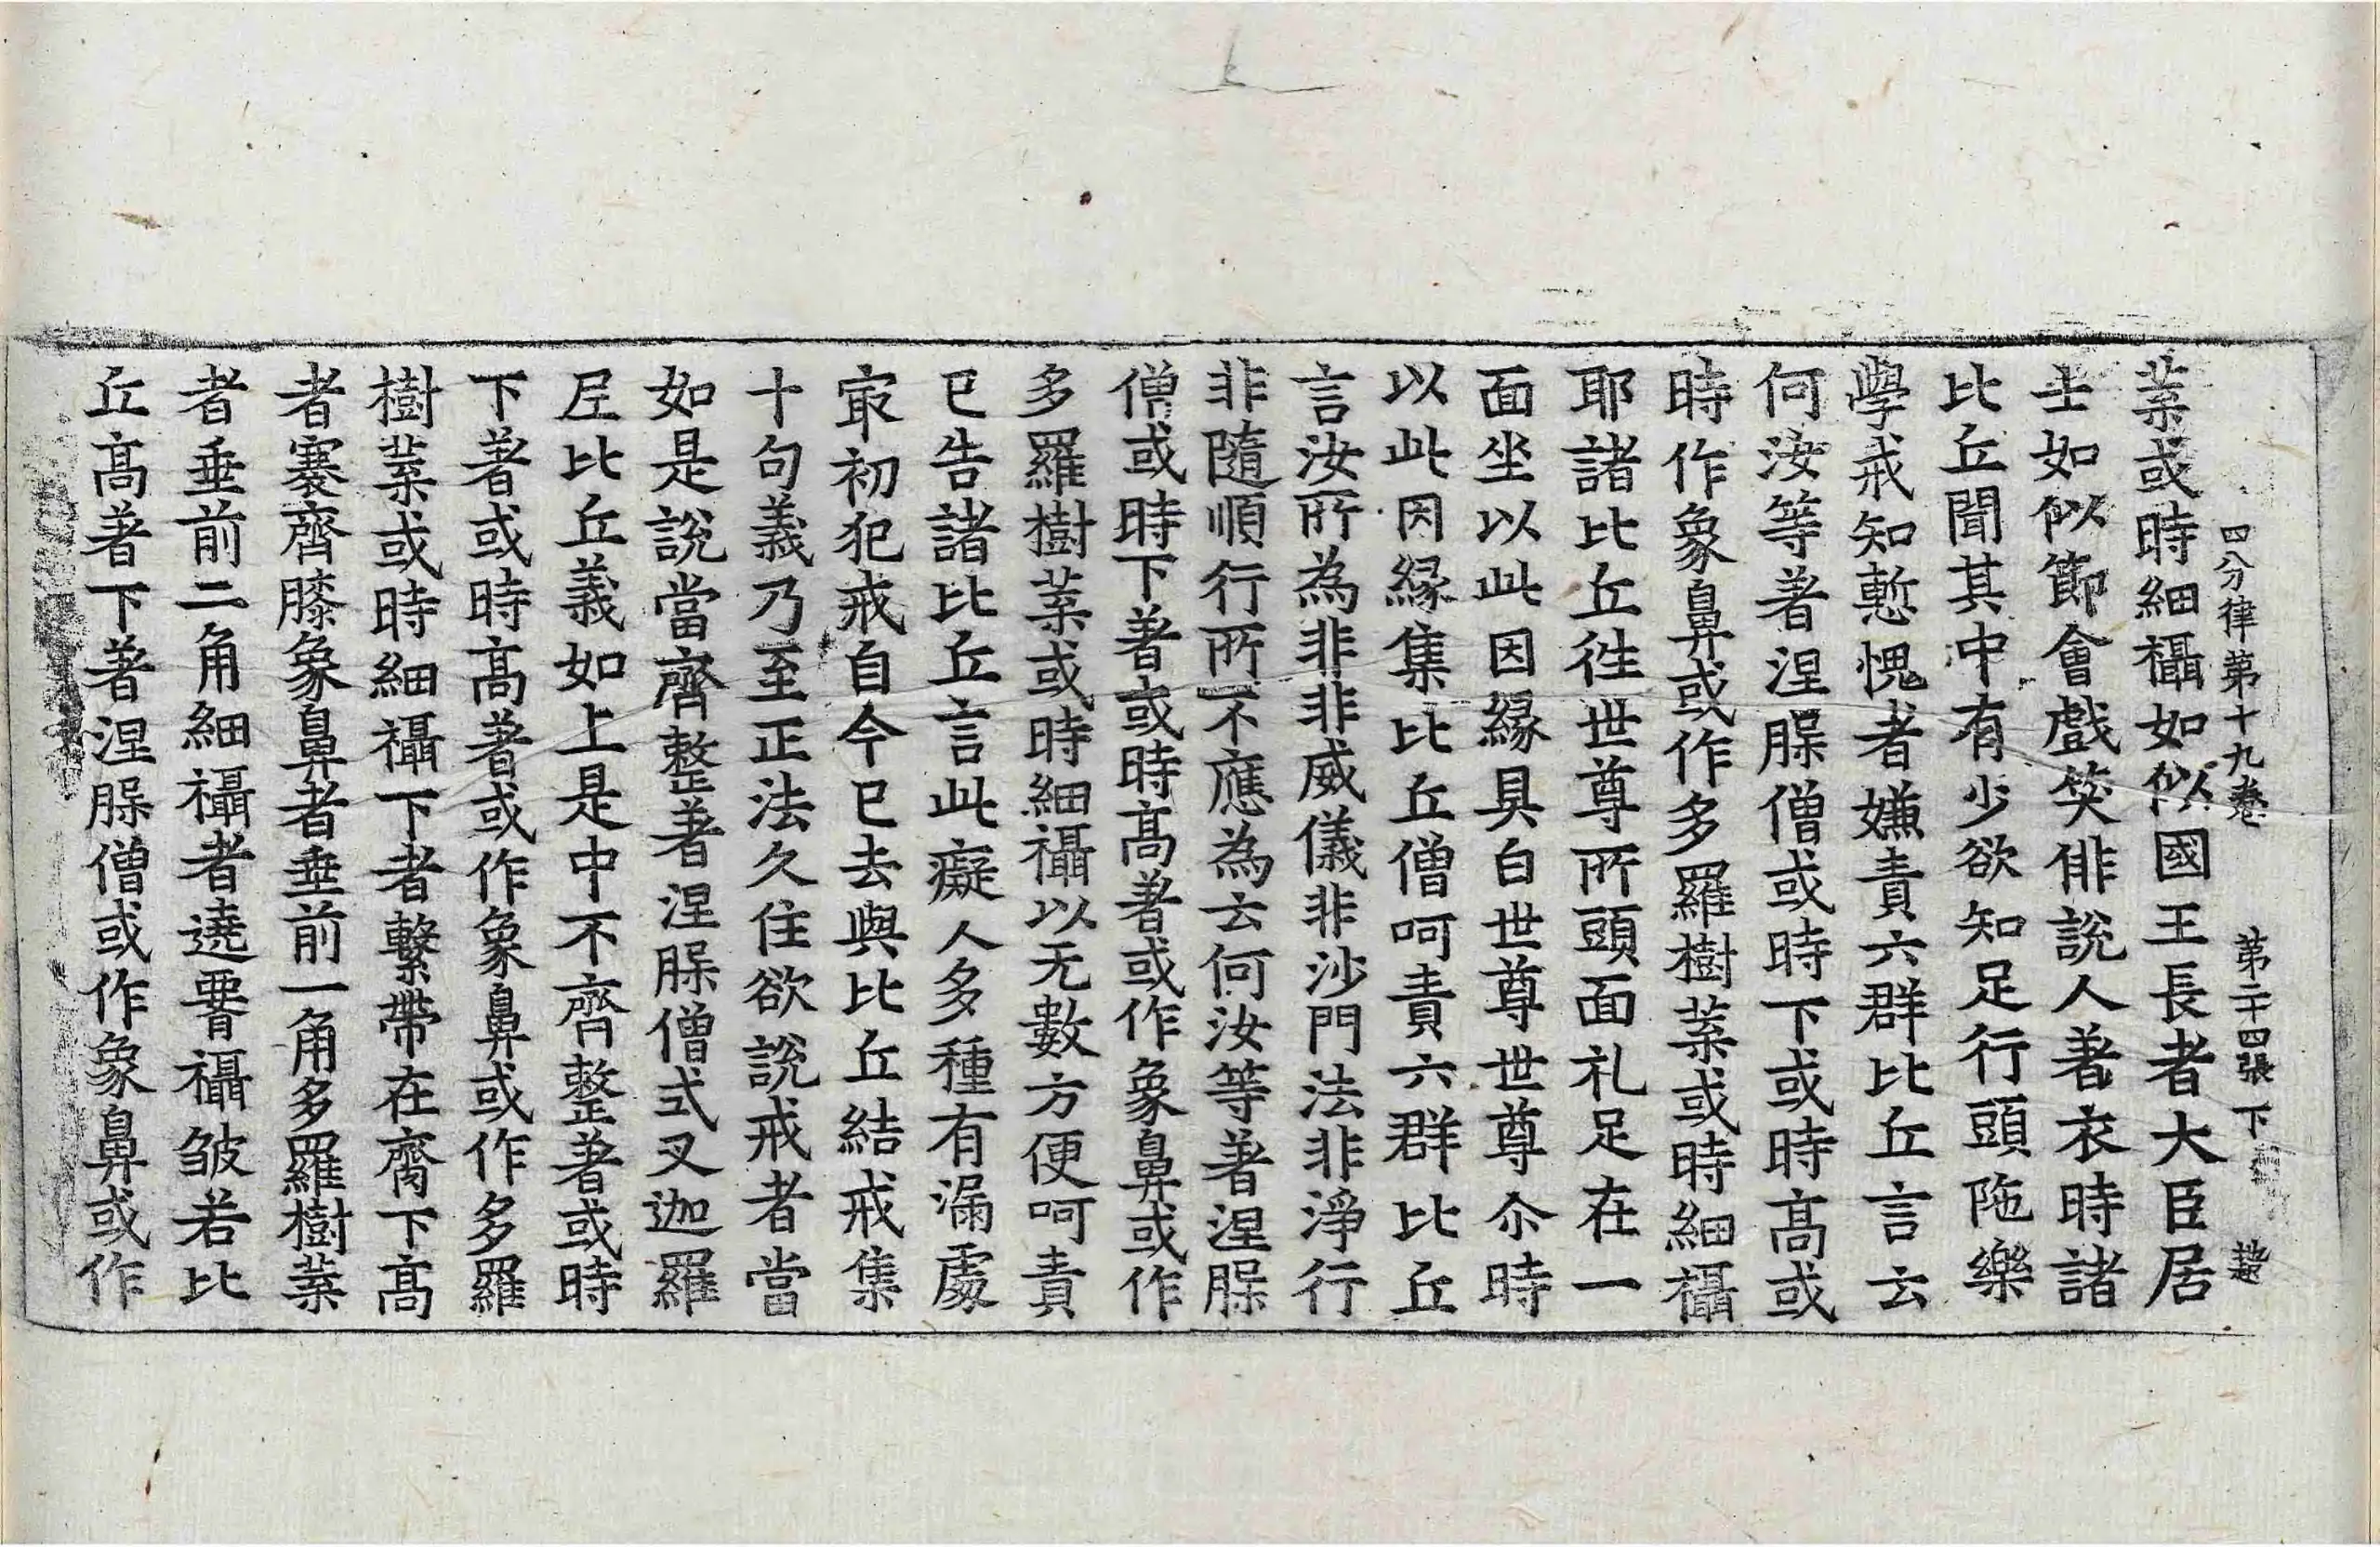 四分律第十九卷 第二十四張 下 楚
葉或時細襵如似國王長者大臣居
士如似節會戲笑俳說人著衣時諸
比丘聞其中有少欲知足行頭陁樂
學戒知慙愧者嫌責六群比丘言云
何汝等著涅䏶僧或時下或時高或
時作象鼻或作多羅樹葉或時細襵
耶諸比丘徃世尊所頭面礼足在一
面坐以此因緣具白世尊世尊尒時
以此因緣集比丘僧呵責六群比丘
言汝所為非非威儀非沙門法非淨行
非隨順行所不應為云何汝等著涅䏶
僧或時下著或時高著或作象鼻或作
多羅樹葉或時細襵以无數方便呵責
已告諸比丘言此癡人多種有漏處
㝡初犯戒自今已去與比丘結戒集
十句義乃至正法久住欲說戒者當
如是說當齊整著涅䏶僧式叉迦羅
尼比丘義如上是中不齊整著或時
下著或時高著或作象鼻或作多羅
樹葉或時細襵下者繫帶在齊下高
者褰齊膝象鼻者垂前一角多羅樹葉
者垂前二角細襵者遶䯒襵皺若比
丘高著下著涅䏶僧或作象鼻或作